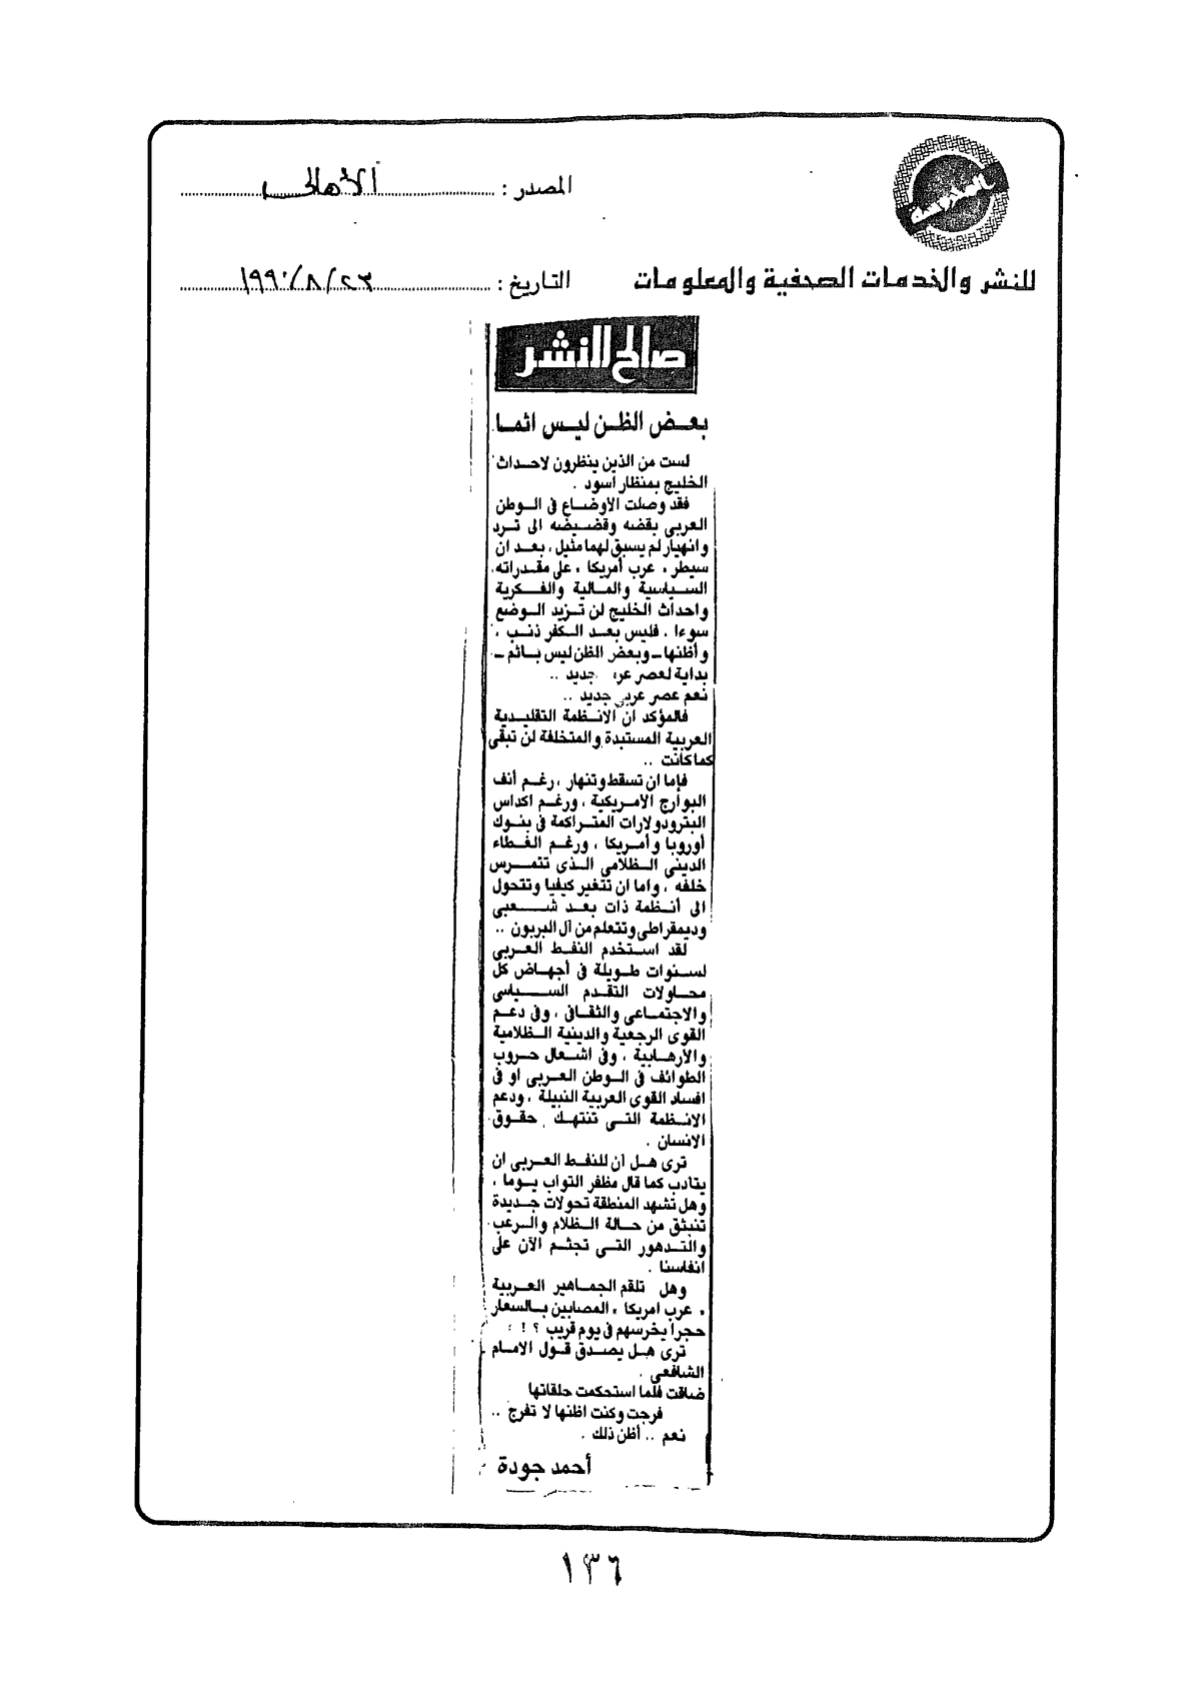 المصدر : الأهالى
للنشر والخدمات الصحفية والمعلومات
التاريخ : ٢٣/٨/١٩٩٠
صالح للنشر
بعض الظن ليس اثما
لست من الذين ينظرون لاحداث
الخليج بمنظار أسود .
فقد وصلت الأوضاع فى الوطن
العربى بقضه وقضيضه الى ترد
وانهيار لم يسبق لهما مثيل ، بعد ان
سيطر « عرب أمريكا » على مقدراته
السياسية والمالية والفكرية
واحداث الخليج لن تزيد الوضع
سوءا ، فليس بعد الكفر ذنب ،
وأظنها ـ وبعض الظن ليس باثم ـ
بداية لعصر جديد ..
نعم عصر عربى جديد ..
فالمؤكد ان الانظمة التقليدية
العربية المستبدة والمتخلفة لن تبقى
كما كانت ..
فإما ان تسقط وتنهار ، رغم أنف
البوارج الامريكية ، ورغم اكداس
البترودولارات المتراكمة فى بنوك
أوروبا وأمريكا ، ورغم الغطاء
الدينى الظلامى الذى تتمرس
خلفه ، واما ان تتغير كيفيا وتتحول
الى أنظمة ذات بعد شعبى
وديمقراطى وتتعلم من آل البربون ..
لقد استخدم النفط العربى
لسنوات طويلة فى أجهاض كل
محاولات التقدم السياسى
والاجتماعى والثقافى ، وفى دعم
القوى الرجعية والدينية الظلامية
والارهابية ، وفى اشعال حروب
الطوائف فى الوطن العربى او فى
افساد القوى العربية النبيلة ، ودعم
الانظمة التى تنتهك حقوق
الانسان .
ترى هل آن للنفط العربى ان
يتأدب كما قال مظفر النواب يوما ،
وهل تشهد المنطقة تحولات جديدة
تنبثق من حالة الظلام والرعب
والتدهور التى تجثم الآن على
انفاسنا .
وهل تلقم الجماهير العربية
« عرب امريكا » المصابين بالسعار
حجرا يخرسهم فى يوم قريب ؟ !
ترى هل يصدق قول الامام
الشافعى .
ضاقت فلما استحكمت حلقاتها
فرجت وكنت اظنها لا تفرج ..
نعم .. أظن ذلك .
أحمد جودة
١٣٦